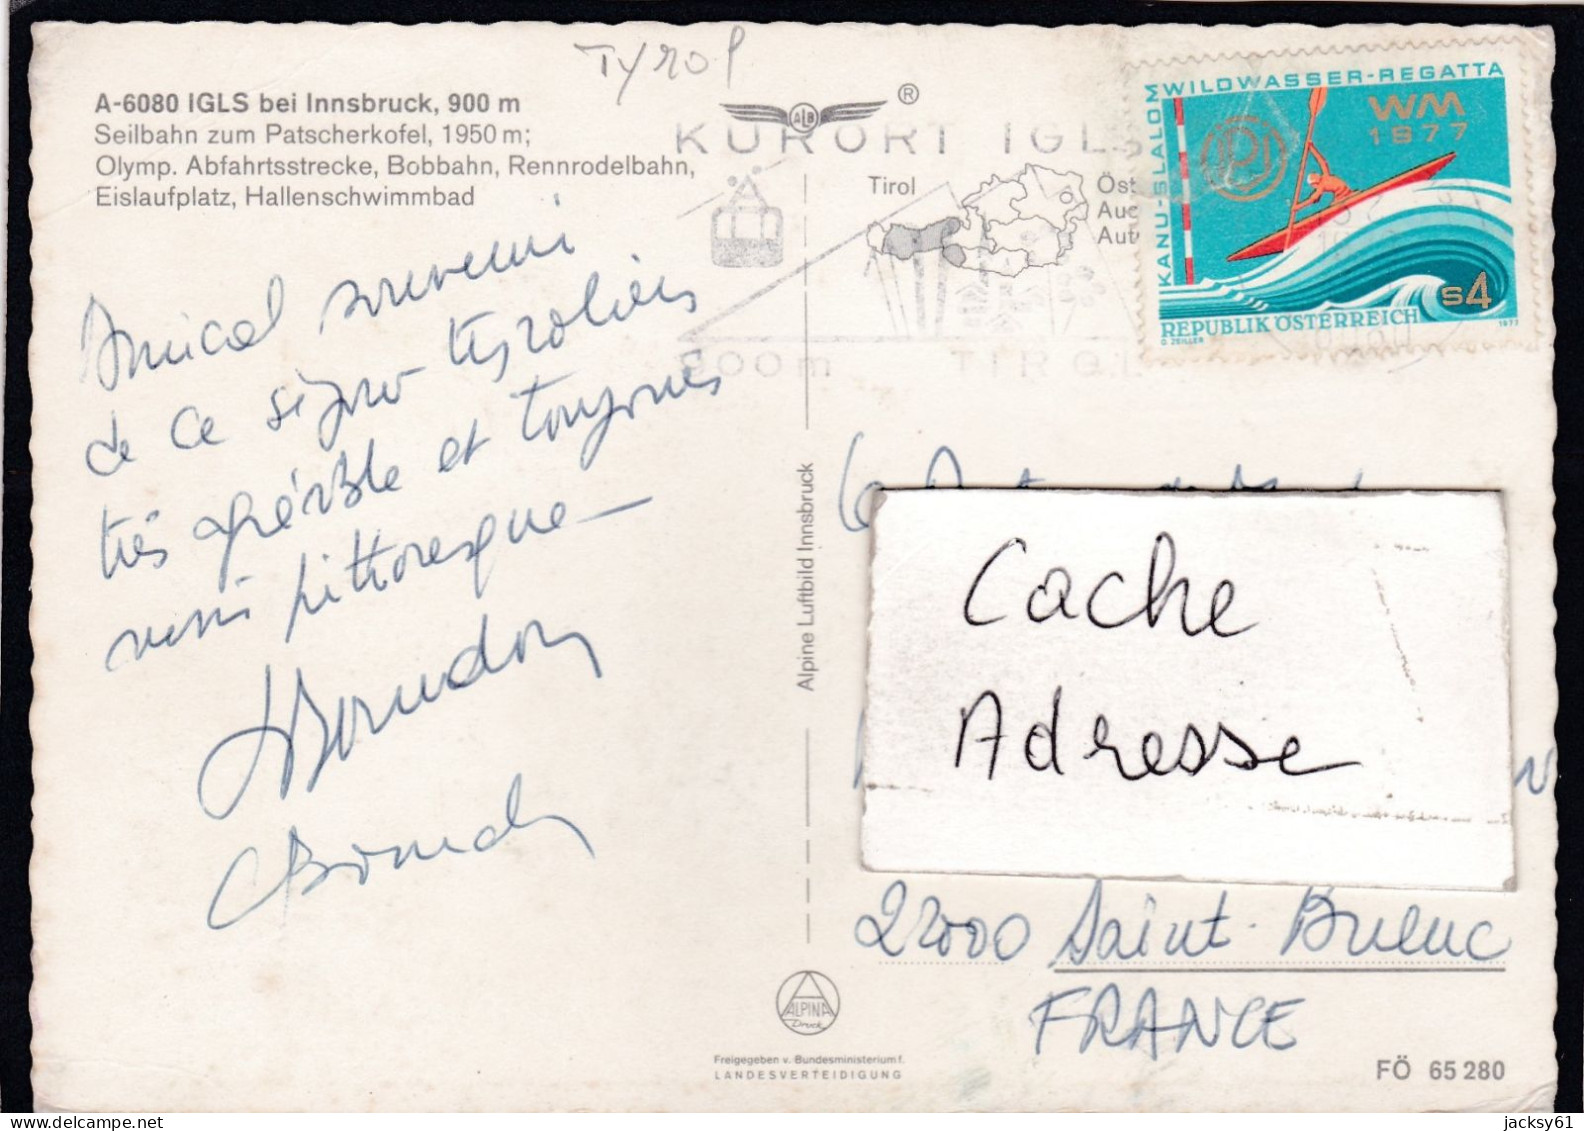 Tyrol
A-6080 IGLS bei Innsbruck, 900 m
Seilbahn zum Patscherkofel, 1950 m;
Olymp. Abfahrtsstrecke, Bobbahn, Rennrodelbahn,
Eislaufplatz, Hallenschwimmbad
ALB ®
KURORT IGLS
Tirol
Öst
Aut
900m TIROL
KANU-SLALOM WILDWASSER-REGATTA
WM
1977
S4
REPUBLIK ÖSTERREICH
O. ZEILLER 1977
Amical souvenir
de ce séjour tyrolien
très agréable et toujours
pittoresque —
Alpine Luftbild Innsbruck
Cache
Adresse
22000 Saint-Brieuc
FRANCE
ALPINA
Druck
Freigegeben v. Bundesministerium f.
LANDESVERTEIDIGUNG
FÖ 65 280
jacksy61